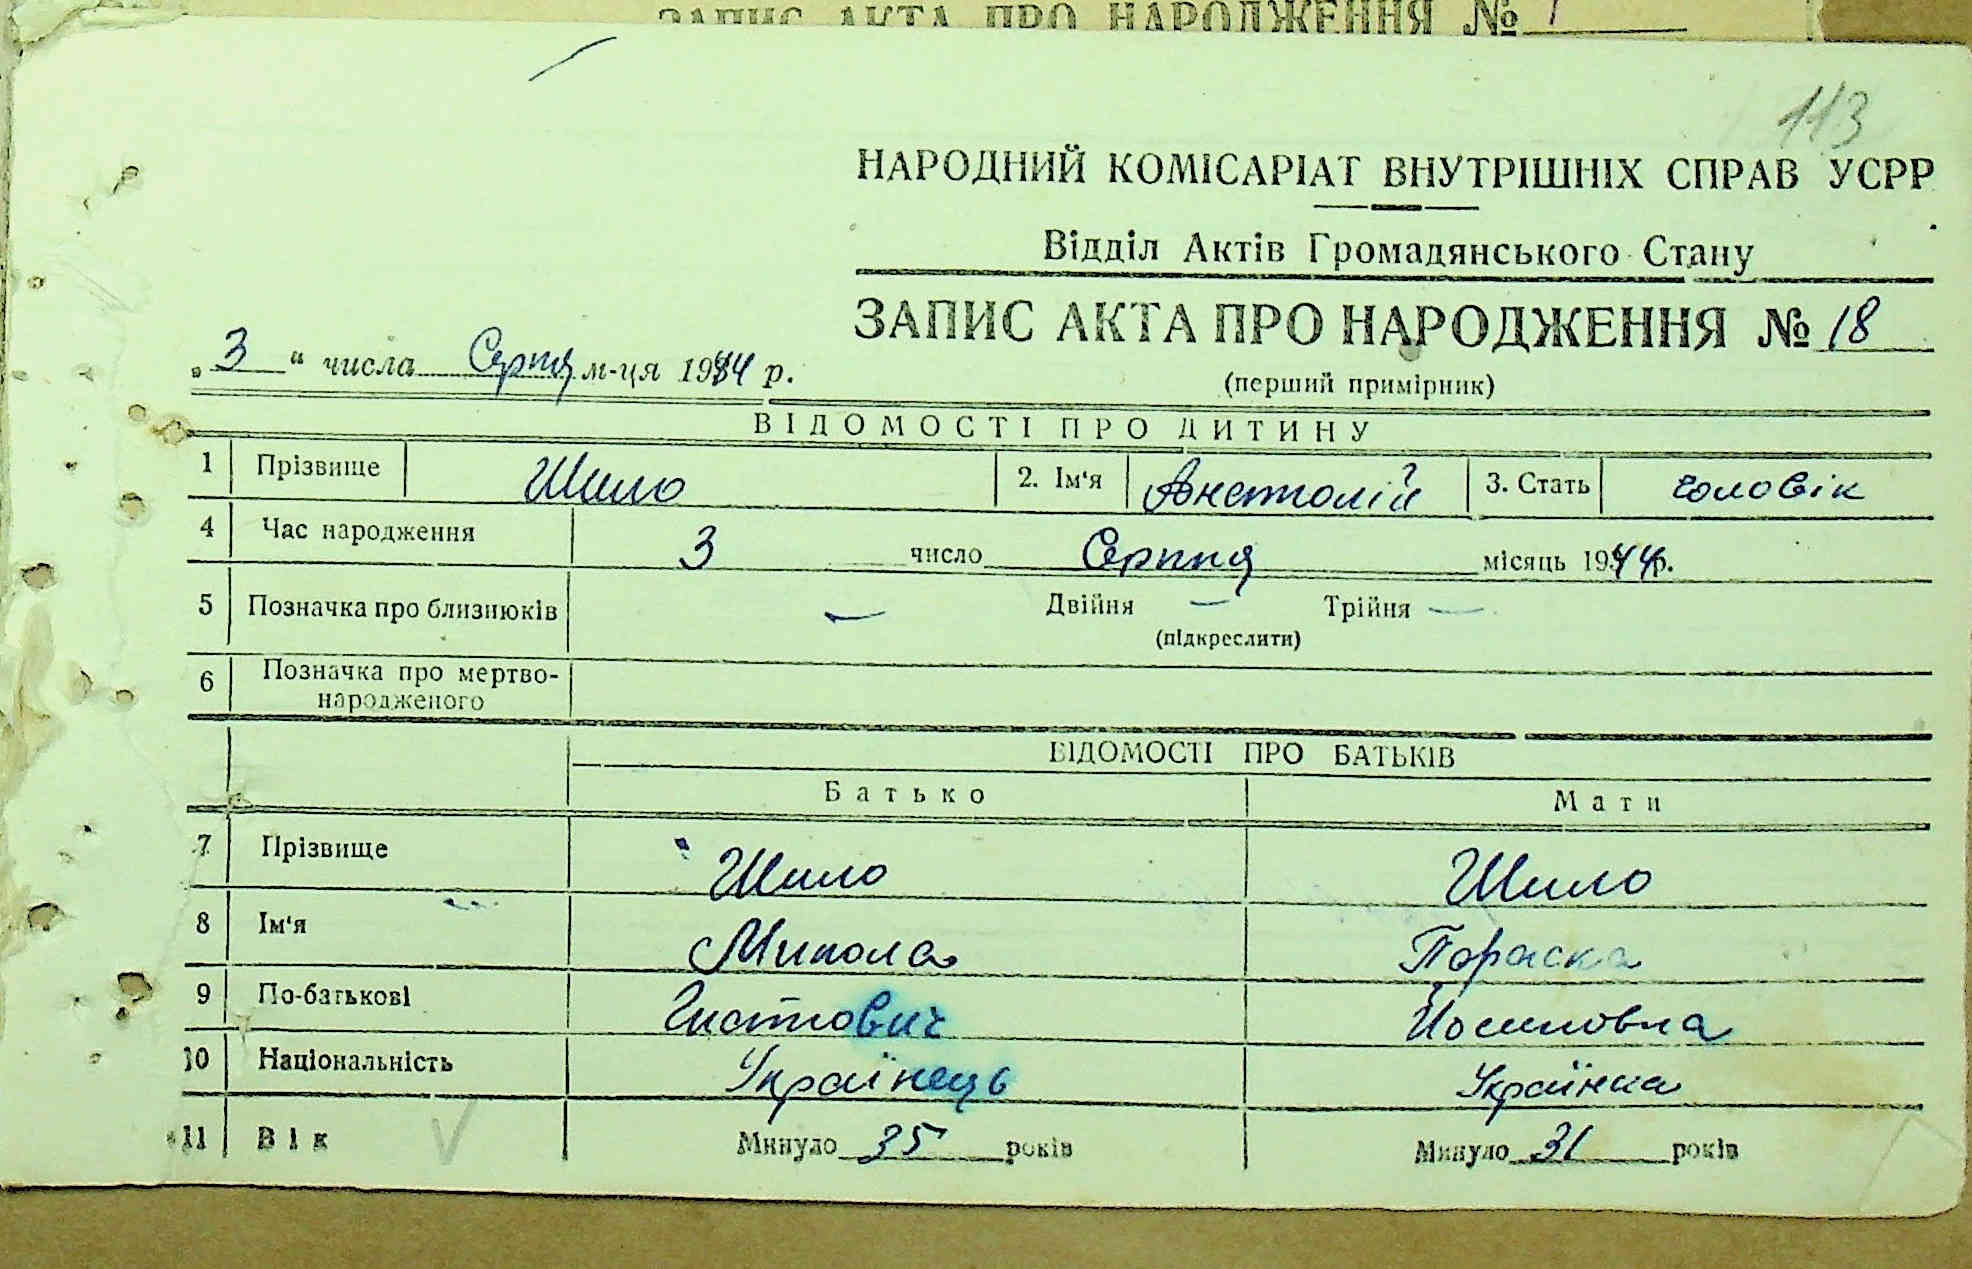 ЗАПИС АКТА ПРО НАРОДЖЕННЯ №
113
НАРОДНИЙ КОМІСАРІАТ ВНУТРІШНІХ СПРАВ УСРР
Відділ Актів Громадянського Стану
ЗАПИС АКТА ПРО НАРОДЖЕННЯ № 18
„ 3 “ числа Серпня м-ця 1944 р.
(перший примірник)
ВІДОМОСТІ ПРО ДИТИНУ
1 Прізвище Шило 2. Ім'я Анатолій 3. Стать чоловік
4 Час народження 3 число Серпня місяць 1944 р.
5 Позначка про близнюків — Двійня — Трійня —
(підкреслити)
6 Позначка про мертво-
народженого
ВІДОМОСТІ ПРО БАТЬКІВ
Батько Мати
7 Прізвище Шило Шило
8 Ім'я Микола Параска
9 По-батькові Йосиповна
10 Національність Українець Українка
11 Вік Минуло 35 років Минуло 31 років